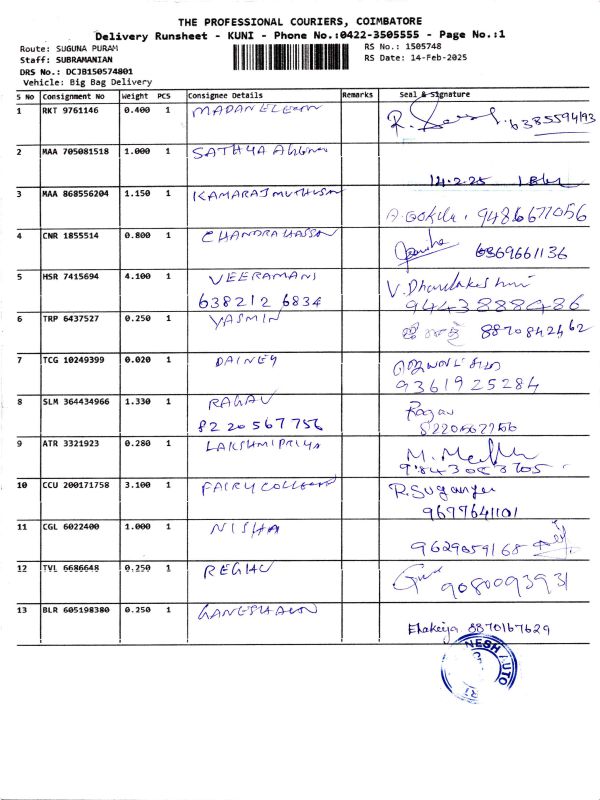 THE PROFESSIONAL COURIERS, COIMBATORE
Delivery Runsheet - KUNI - Phone No.:0422-3505555 - Page No.:1
Route: SUGUNA PURAM
RS No.: 1505748
Staff: SUBRAMANIAN
RS Date: 14-Feb-2025
DRS No.: DCJB150574801
Vehicle: Big Bag Delivery
S No Consignment No Weight PCS Consignee Details Remarks Seal & Signature
1 RKT 9761146 0.400 1 6385594193
2 MAA 705081518 1.000 1 SATHYA
14.2.25
3 MAA 868556204 1.150 1 KAMARAJ
A. Gokila. 9486677056
4 CNR 1855514 0.800 1 CHANDRAHASSAN 6369661136
5 HSR 7415694 4.100 1 VEERAMANI V. Dhanalakshmi
638212 6834 9443888486
6 TRP 6437527 0.250 1 YASMIN 8870842462
7 TCG 10249399 0.020 1 DAINEY
9361925284
8 SLM 364434966 1.330 1 RAGHAV Ragav
8220567756 8220567756
9 ATR 3321923 0.280 1 LAKSHMIPRIYA
10 CCU 200171758 3.100 1 FAIRY R. Suganya
9677641101
11 CGL 6022400 1.000 1 NISHA
9629059168
12 TVL 6686648 0.250 1 REGHU 9080093931
13 BLR 605198380 0.250 1
Elakeiya 8870167629
NESH AUTO